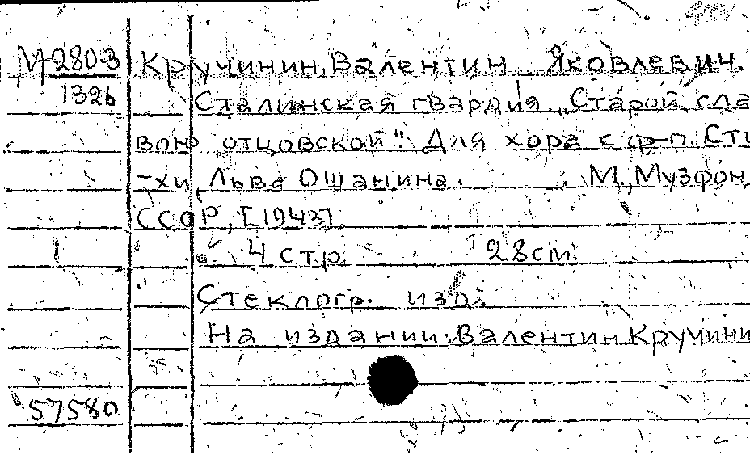 М-2803 Кручинин, Валентин Яковлевич.
1326 Сталинская гвардия „Старой сла
вою отцовской". Для хора с ф-п. Сти
-хи Льва Ошанина. М., Музфонд
СССР, [1942]
4 стр. 28 см.
Стеклогр. изд.
На издании: Валентин Кручини
57580